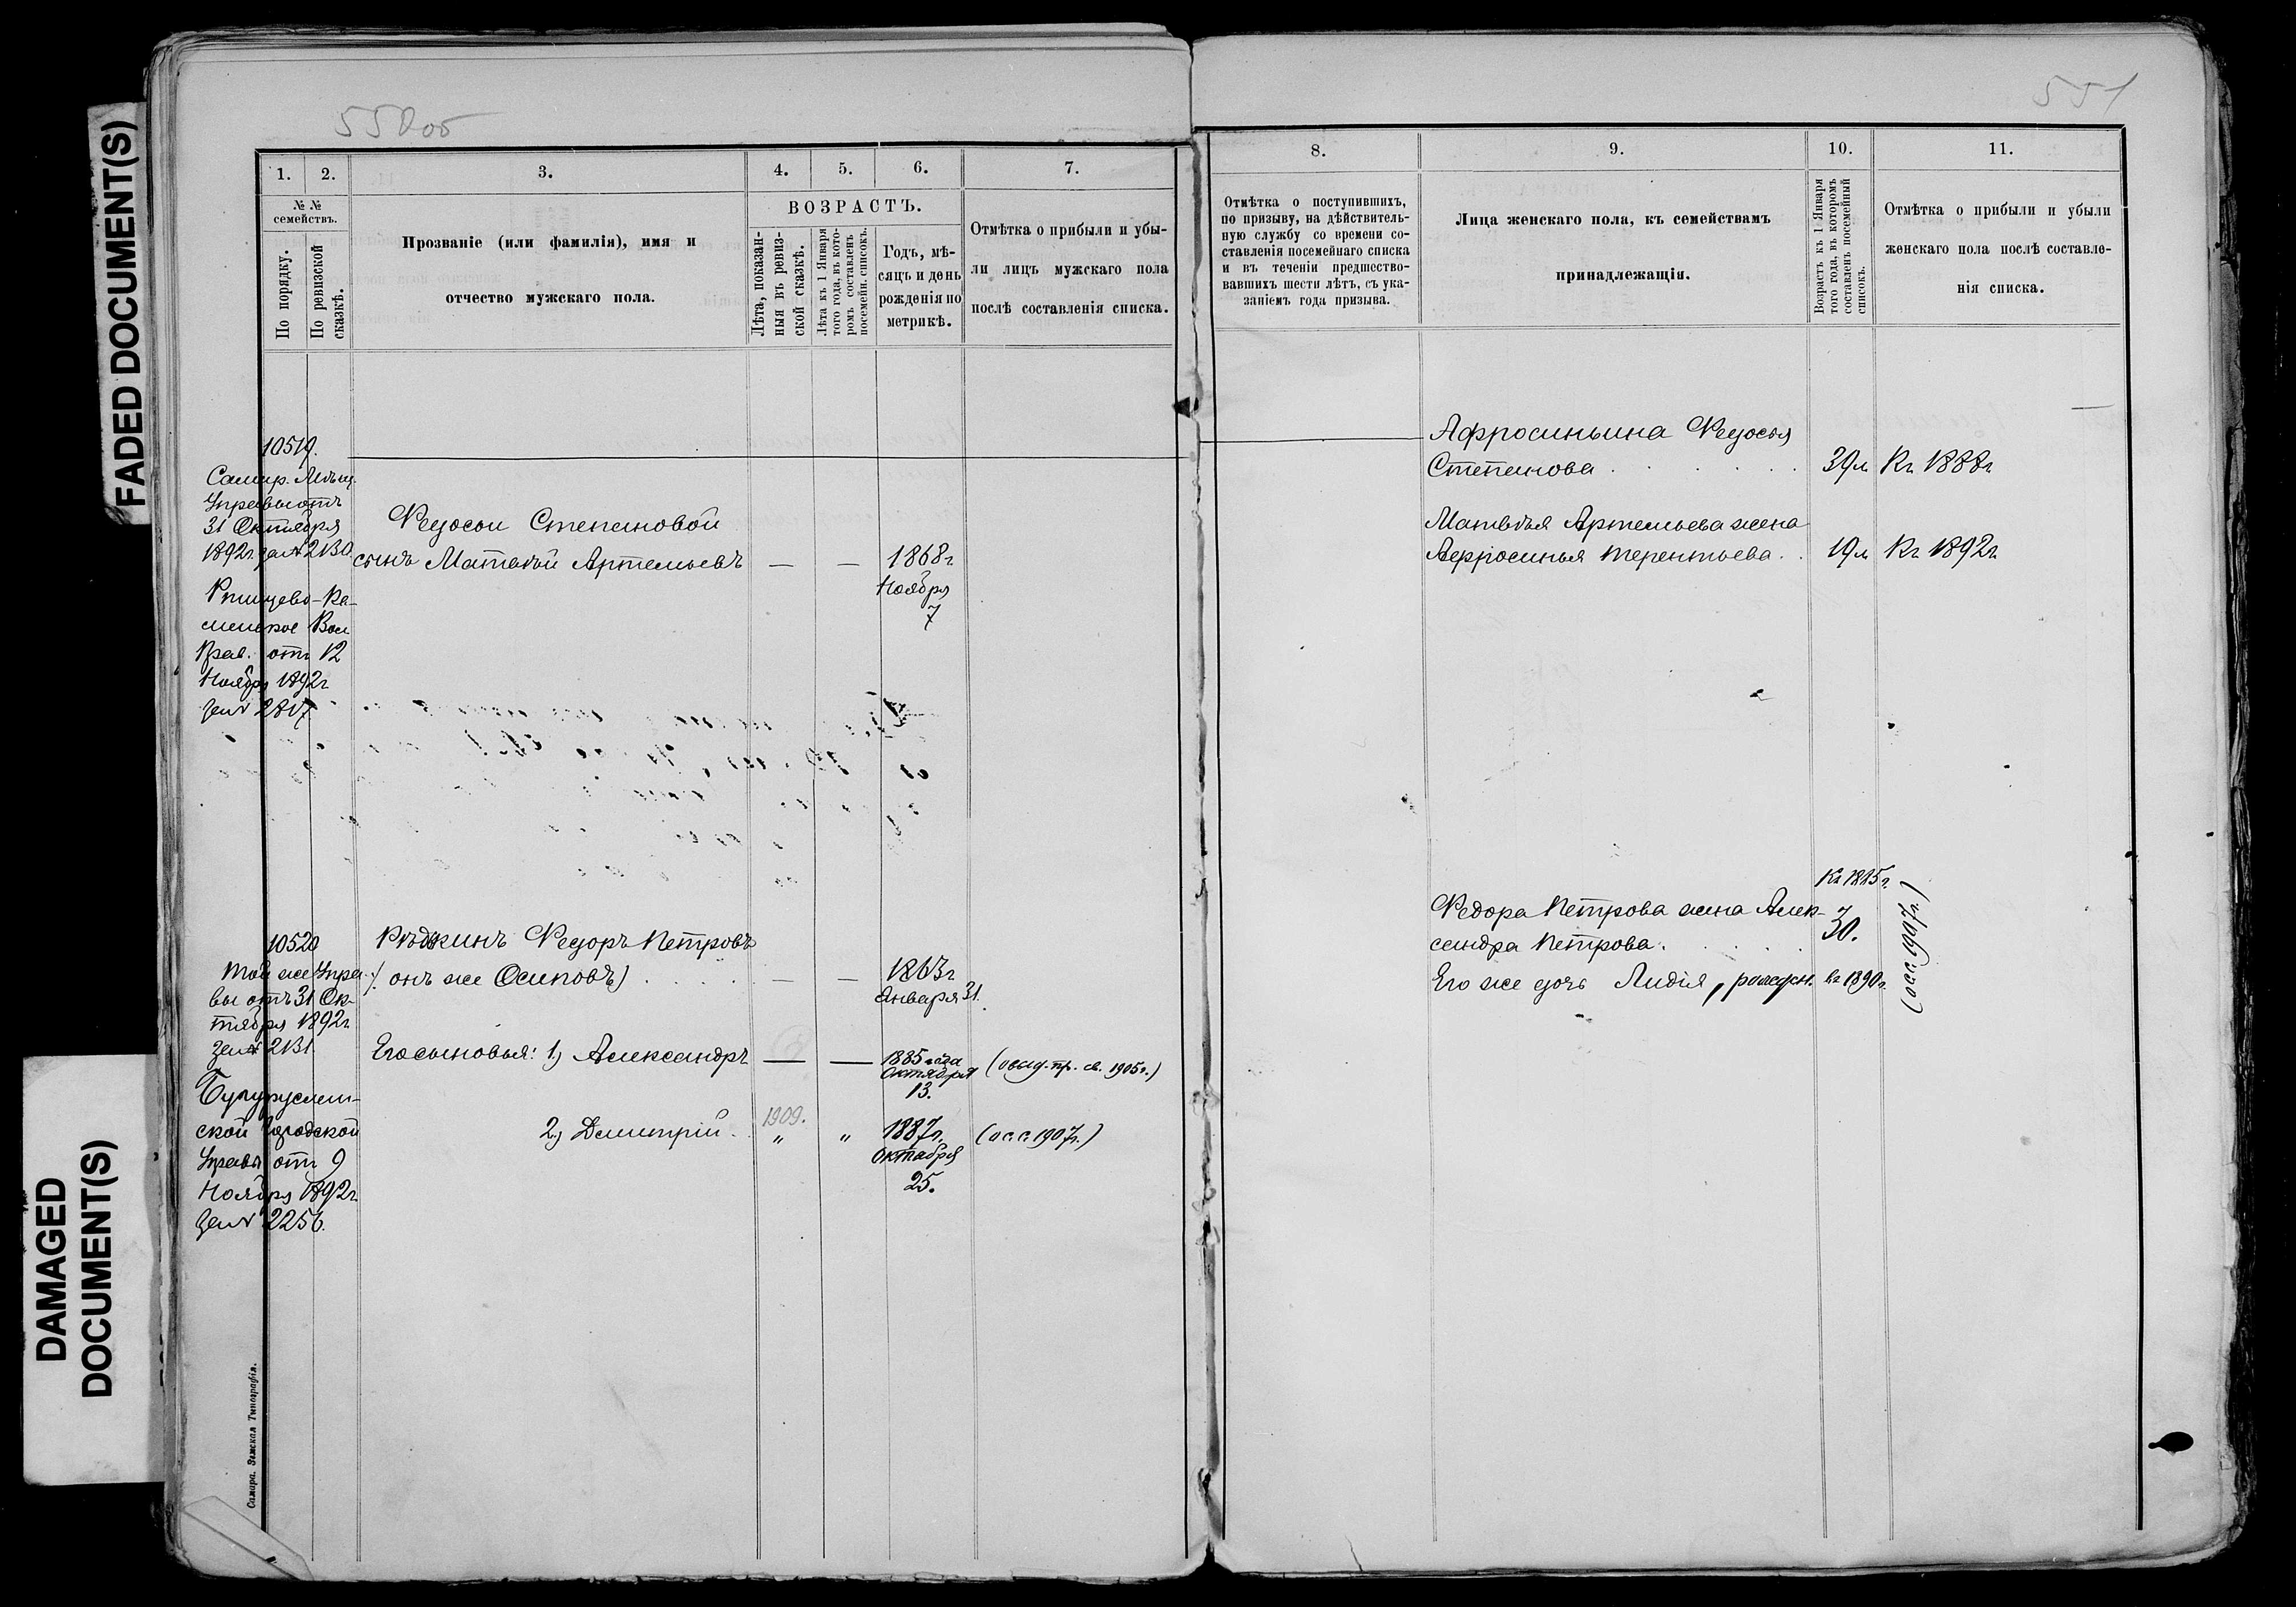 FADED DOCUMENT(S)
DAMAGED
DOCUMENT(S)
550об
1. 2. 3. 4. 5. 6. 7.
№ №
семействъ.
По порядку.
По ревизской
сказкѣ.
Прозваніе (или фамилія), имя и
отчество мужскаго пола.
ВОЗРАСТЪ.
Лѣта, показан-
ныя въ ревиз-
ской сказкѣ.
Лѣта къ 1 Января
того года, въ кото-
ромъ составленъ
посемейн. списокъ.
Годъ, мѣ-
сяцъ и день
рожденія по
метрикѣ.
Отмѣтка о прибыли и убы-
ли лицъ мужскаго пола
послѣ составленія списка.
10519.
Самар. Мѣщ.
Управы отъ
31 Октября
1892г. за № 2130.
Каменское Вол.
Прав. отъ 12
Ноября 1892г
за № 2817
Федосьи Степановой
сынъ Матвѣй Артемьевъ — — 1868г
Ноября
7
10520
Той же Упра-
вы отъ 31 Ок-
тября 1892г
за № 2131
Бугуруслан-
ской Городской
Управы отъ 9
Ноября 1892г.
за № 2256.
Рѣдкинъ Федоръ Петровъ
(онъ же Осиповъ) — — 1863г
Января 31.
Его сыновья: 1) Александръ — — 1885 года
Октября
13.
(объяд. пр. св. 1905г.)
2) Димитрій. 1909. " " 1887г.
Октября
25.
(о с.с. 1907г.)
Самара. Земская Типографія.
551
8. 9. 10. 11.
Отмѣтка о поступившихъ,
по призыву, на дѣйствитель-
ную службу со времени со-
ставленія посемейнаго списка
и въ теченіи предшество-
вавшихъ шести лѣтъ, съ ука-
заніемъ года призыва.
Лица женскаго пола, къ семействамъ
принадлежащія.
Возрастъ къ 1 Января
того года, въ которомъ
составленъ посемейный
списокъ.
Отмѣтка о прибыли и убыли
женскаго пола послѣ составле-
нія списка.
Афросиньина Федосья
Степанова 39л Къ 1888г
Матвѣя Артемьева жена
Аефросинья Терентьева. 19л Къ 1892г.
Федора Петрова жена Алек-
сандра Петрова. 30.
Его же дочь Лидія, рожден. въ 1890г.
(о с.с. 1907г.)